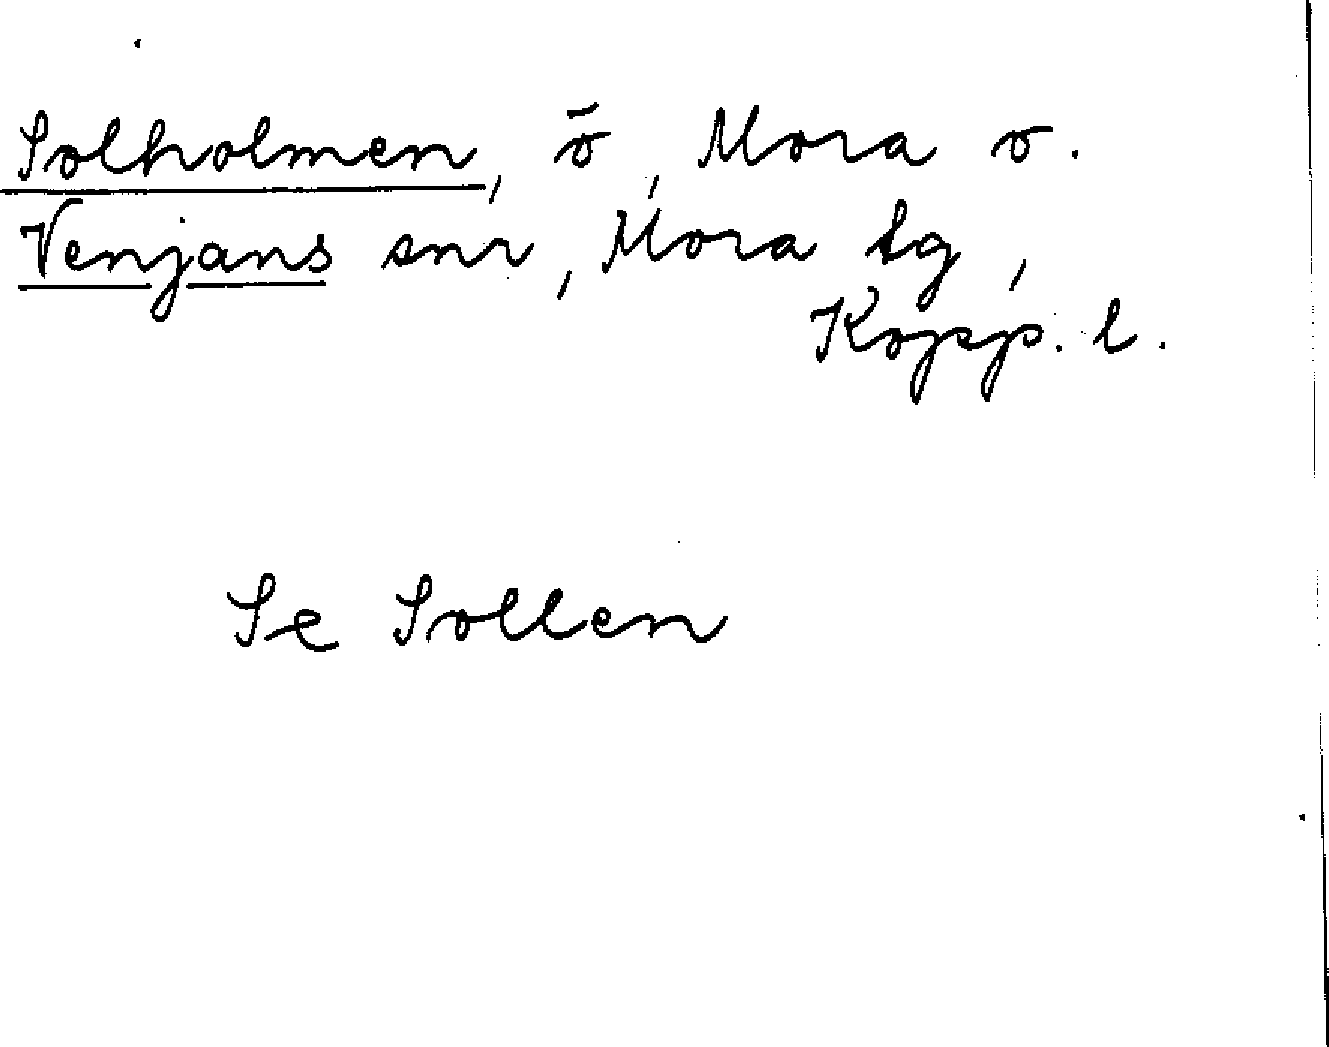 Solholmen, ö, Mora o.
Venjans snr, Mora tg,
Kopp. l.
Se Sollen